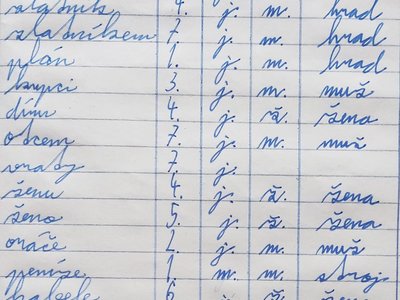 zlatník 4. j. m. hrad
zlatníkem 7. j. m. hrad
plán 1. j. m. hrad
kupci 3. j. m. muž
4. j. ž. žena
otcem 7. j. m. muž
vraby 7. j.
ženu 4. j. ž. žena
ženo 5. j. ž. žena
oráče 2. j. m. muž
peníze 1. m. m. stroj
6 j. ž.